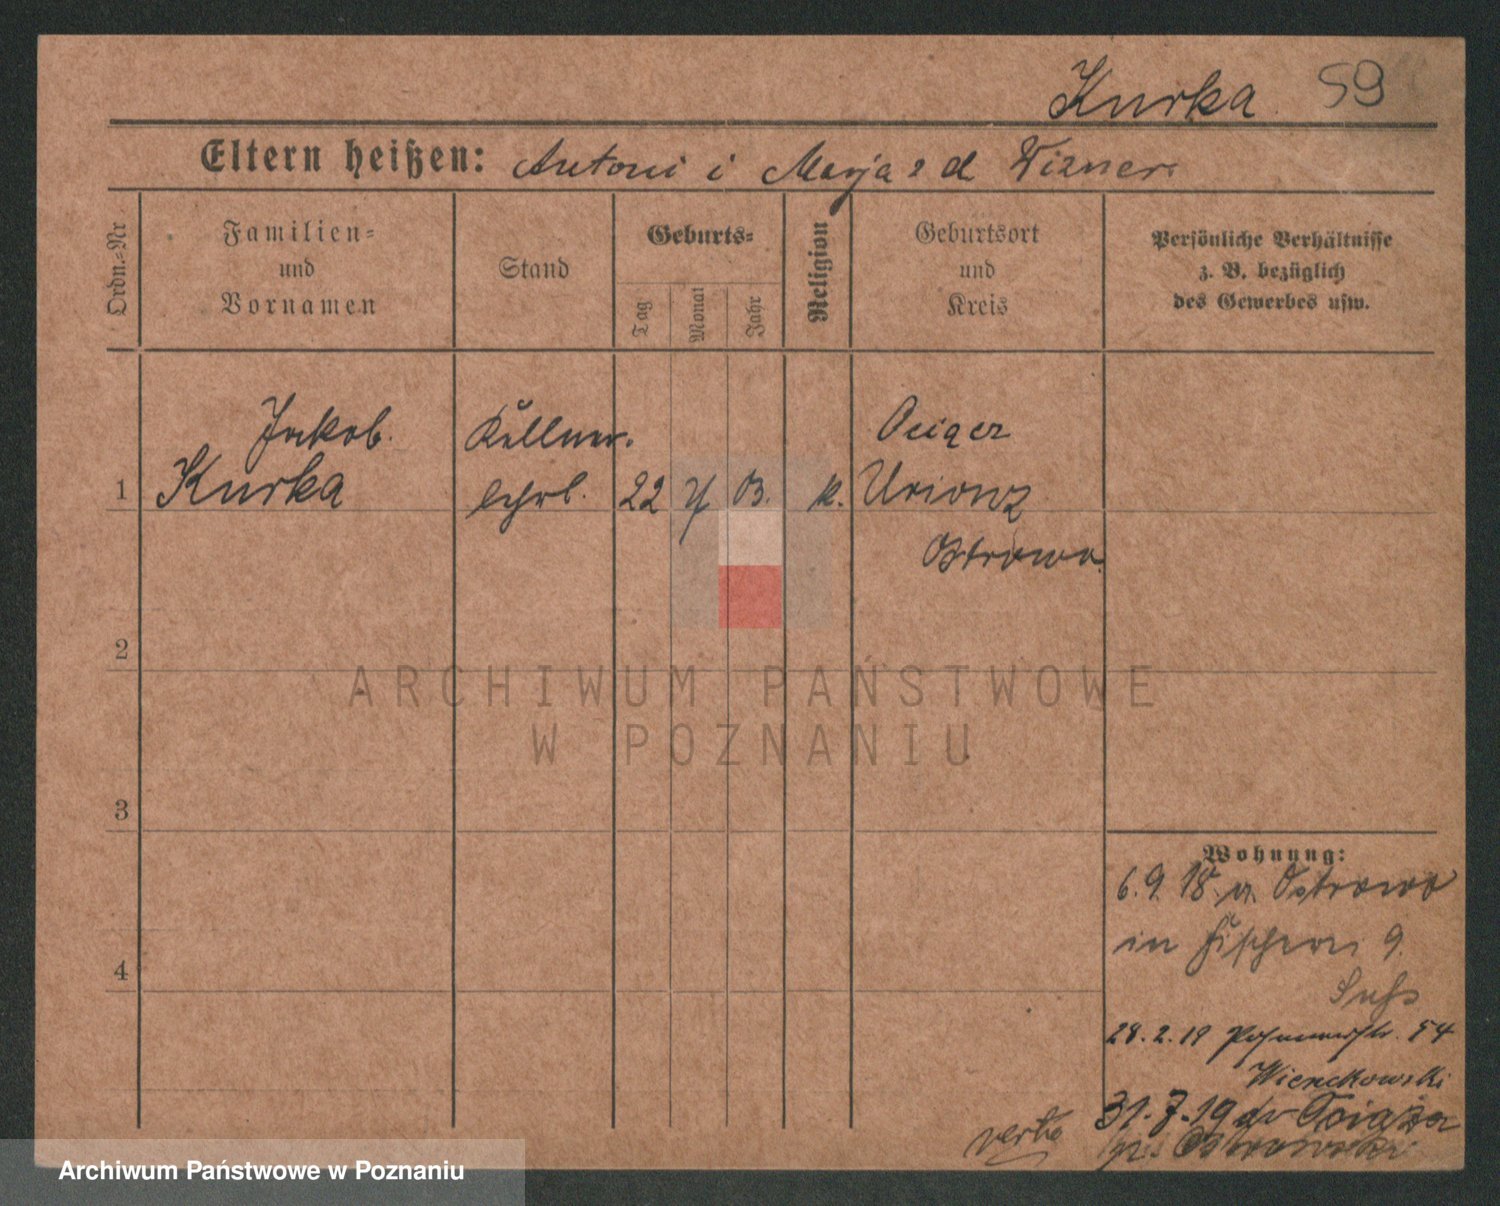 Kurka 59
Eltern heißen: Antoni i Marja z d Wizner
Ordn.=Nr
Familien=
und
Vornamen
Stand
Geburts=
Tag
Monat
Jahr
Religion
Geburtsort
und
Kreis
Persönliche Verhältnisse
z. B. bezüglich
des Gewerbes usw.
Jakob
Kurka
Kellner
lehrl.
1
22
k.
Ostrowo
2
3
4
Wohnung:
6.9.18 v. Ostrowo
in Fischerei 9.
28.2.19 54
Wienckowski
31.7.19 do Ociąża
verte
ARCHIWUM PAŃSTWOWE
W POZNANIU
Archiwum Państwowe w Poznaniu